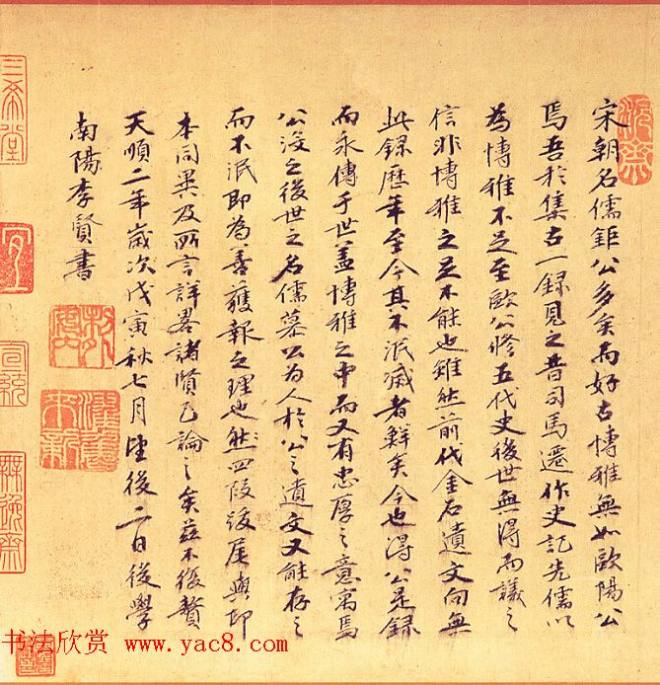 宋朝名儒鉅公多矣而好古博雅無如歐陽公
焉吾於集古一錄見之昔司馬遷作史記先儒以
為博雅不足至歐公修五代史後世無得而議之
信非博雅之足不能也雖然前代金石遺文向無
此錄歷年至今其不泯滅者鮮矣今也得公是錄
而永傳于世蓋博雅之中而又有忠厚之意寓焉
公沒之後世之名儒慕公為人於公之遺文又能存之
而不泯即為善獲報之理也然四段跋尾與印
本同異及所言詳畧諸賢已論之矣茲不復贅
天順二年歲次戊寅秋七月望後二日後學
南陽李賢書
三希堂
宜
書法欣赏 www.yac8.com